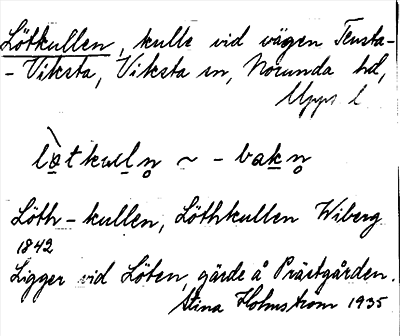 Lötkullen, kulle vid vägen Tensta-
-Viksta, Viksta sn, Norunda hd,
Upps. l.
lötkulln ~ -bakn
Löth-kullen, Löthkullen Wiberg
1842
Ligger vid Löten, gärde å Prästgården.
Stina Holmstrom 1935